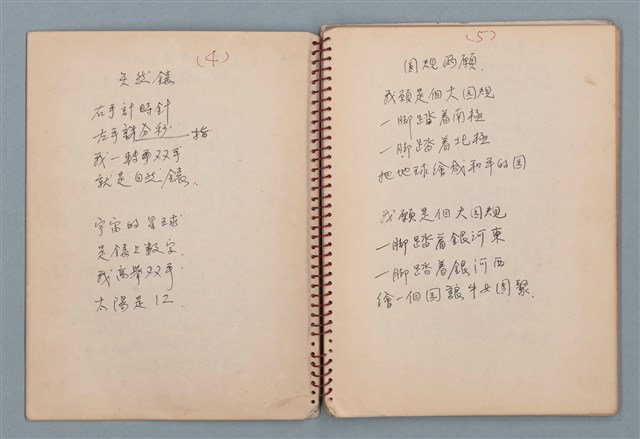 (4)
天然錶
右手計時針
左手計分秒 指
我一轉動双手
就是自然錶、
宇宙的星球
是錶上数字.
我高舉双手
太陽是12
(5)
圓規兩願.
我願是個大圓規
一脚踏着南極
一脚踏着北極
把地球繪成和平的圓
我願是個大圓規
一脚踏着銀河東
一脚踏着銀河西
繪一個圓讓牛女團聚.